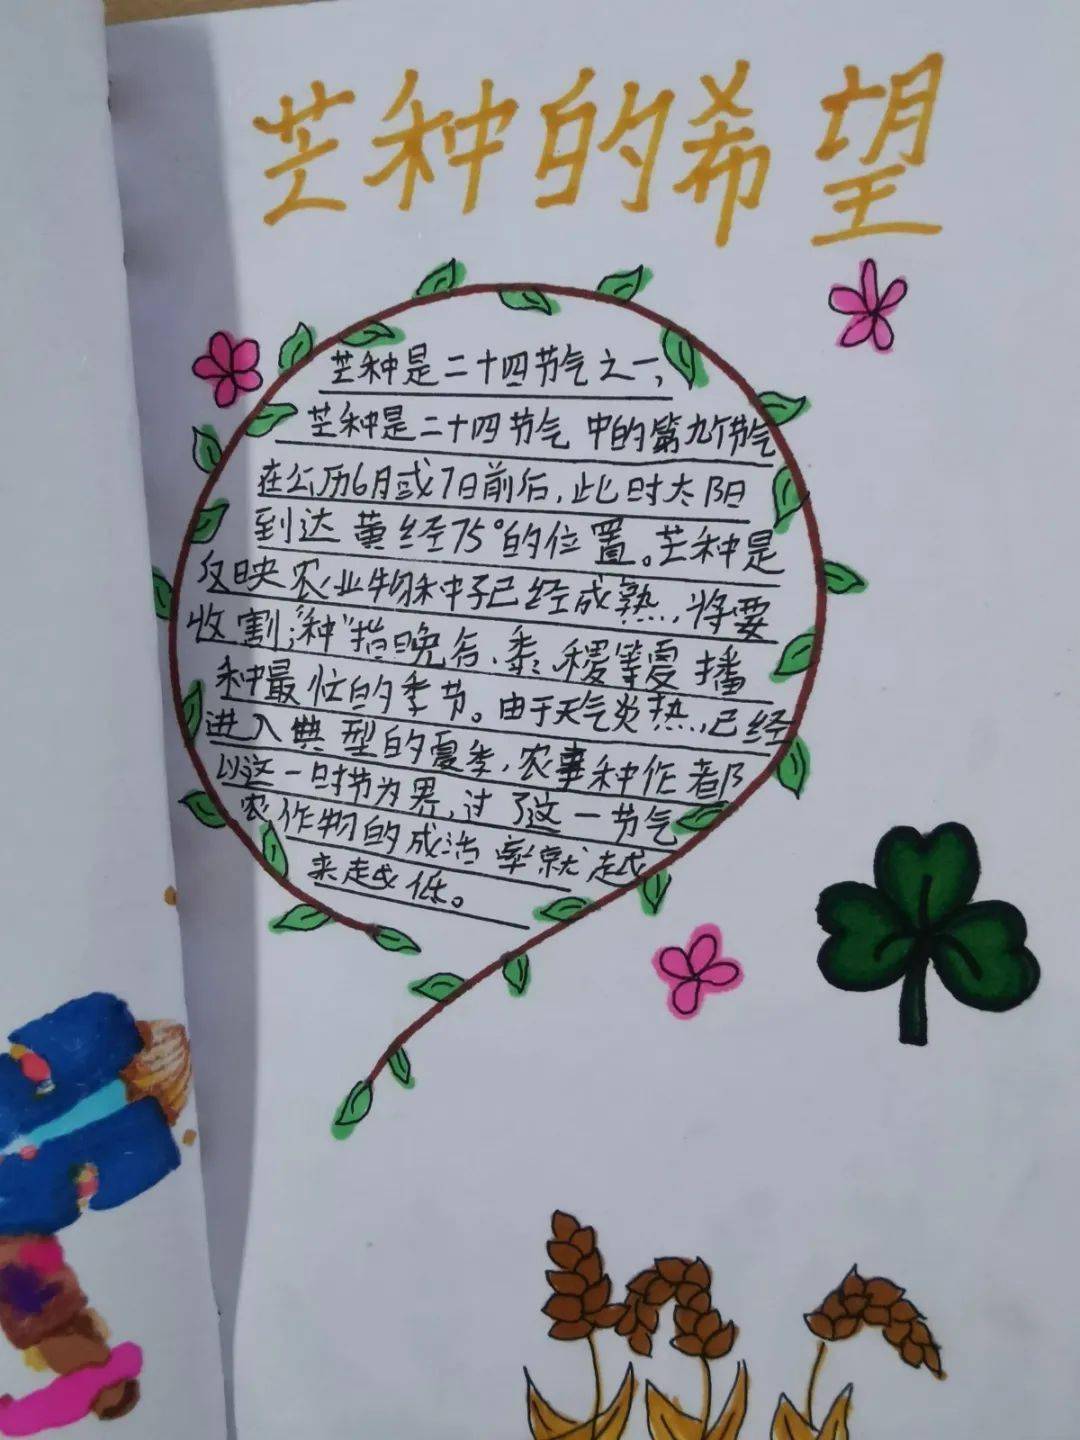 芒种的希望
芒种是二十四节气之一,
芒种是二十四节气中的第九个节气
在公历6月或7日前后,此时太阳
到达黄经75°的位置。芒种是
反映农业物种子已经成熟,将要
收割;"种"指晚谷、黍、稷等夏播
种最忙的季节。由于天气炎热,已经
进入典型的夏季,农事种作都
以这一时节为界,过了这一节气
农作物的成活率就越
来越低。